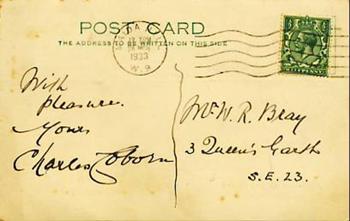 POST CARD
THE ADDRESS TO BE WRITTEN ON THIS SIDE
1933
W. 9
With
pleasure.
Yours
Charles Coborn
Mr. W. R. Bray
3 Queen's Garth
S.E. 23.